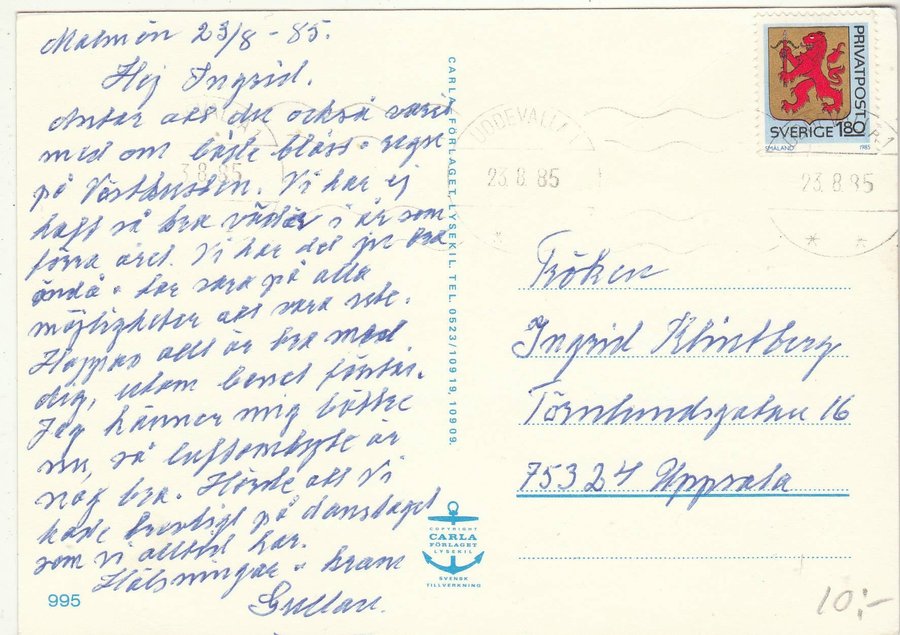 Malmön 23/8-85.
Hej Ingrid.
Antar att du också varit
med om både blåst o regn
på Västkusten. Vi har ej
haft så bra väder i år som
förra året. Vi har det ju bra
ändå o har vara på alla
möjligheter att vara ute.
Hoppas allt är bra med
dig, utom benet förstås.
Jag känner mig bättre
nu, så luftombyte är
nog bra. Hörde att Vi
hade trevligt på
som vi alltid har.
Hälsningar o kram
Gullan.
995
CARLA FÖRLAGET, LYSEKIL. TEL. 0523/109 19, 109 09.
COPYRIGHT
CARLA
FÖRLAGET
LYSEKIL
SVENSK
TILLVERKNING
UDDEVALLA 1
23.8.85
PRIVATPOST
SVERIGE 180
SMÅLAND 1985
23.8.85
3.8.85
Fröken
Ingrid Klintberg
Törnlundsgatan 16
75324 Uppsala
10:-